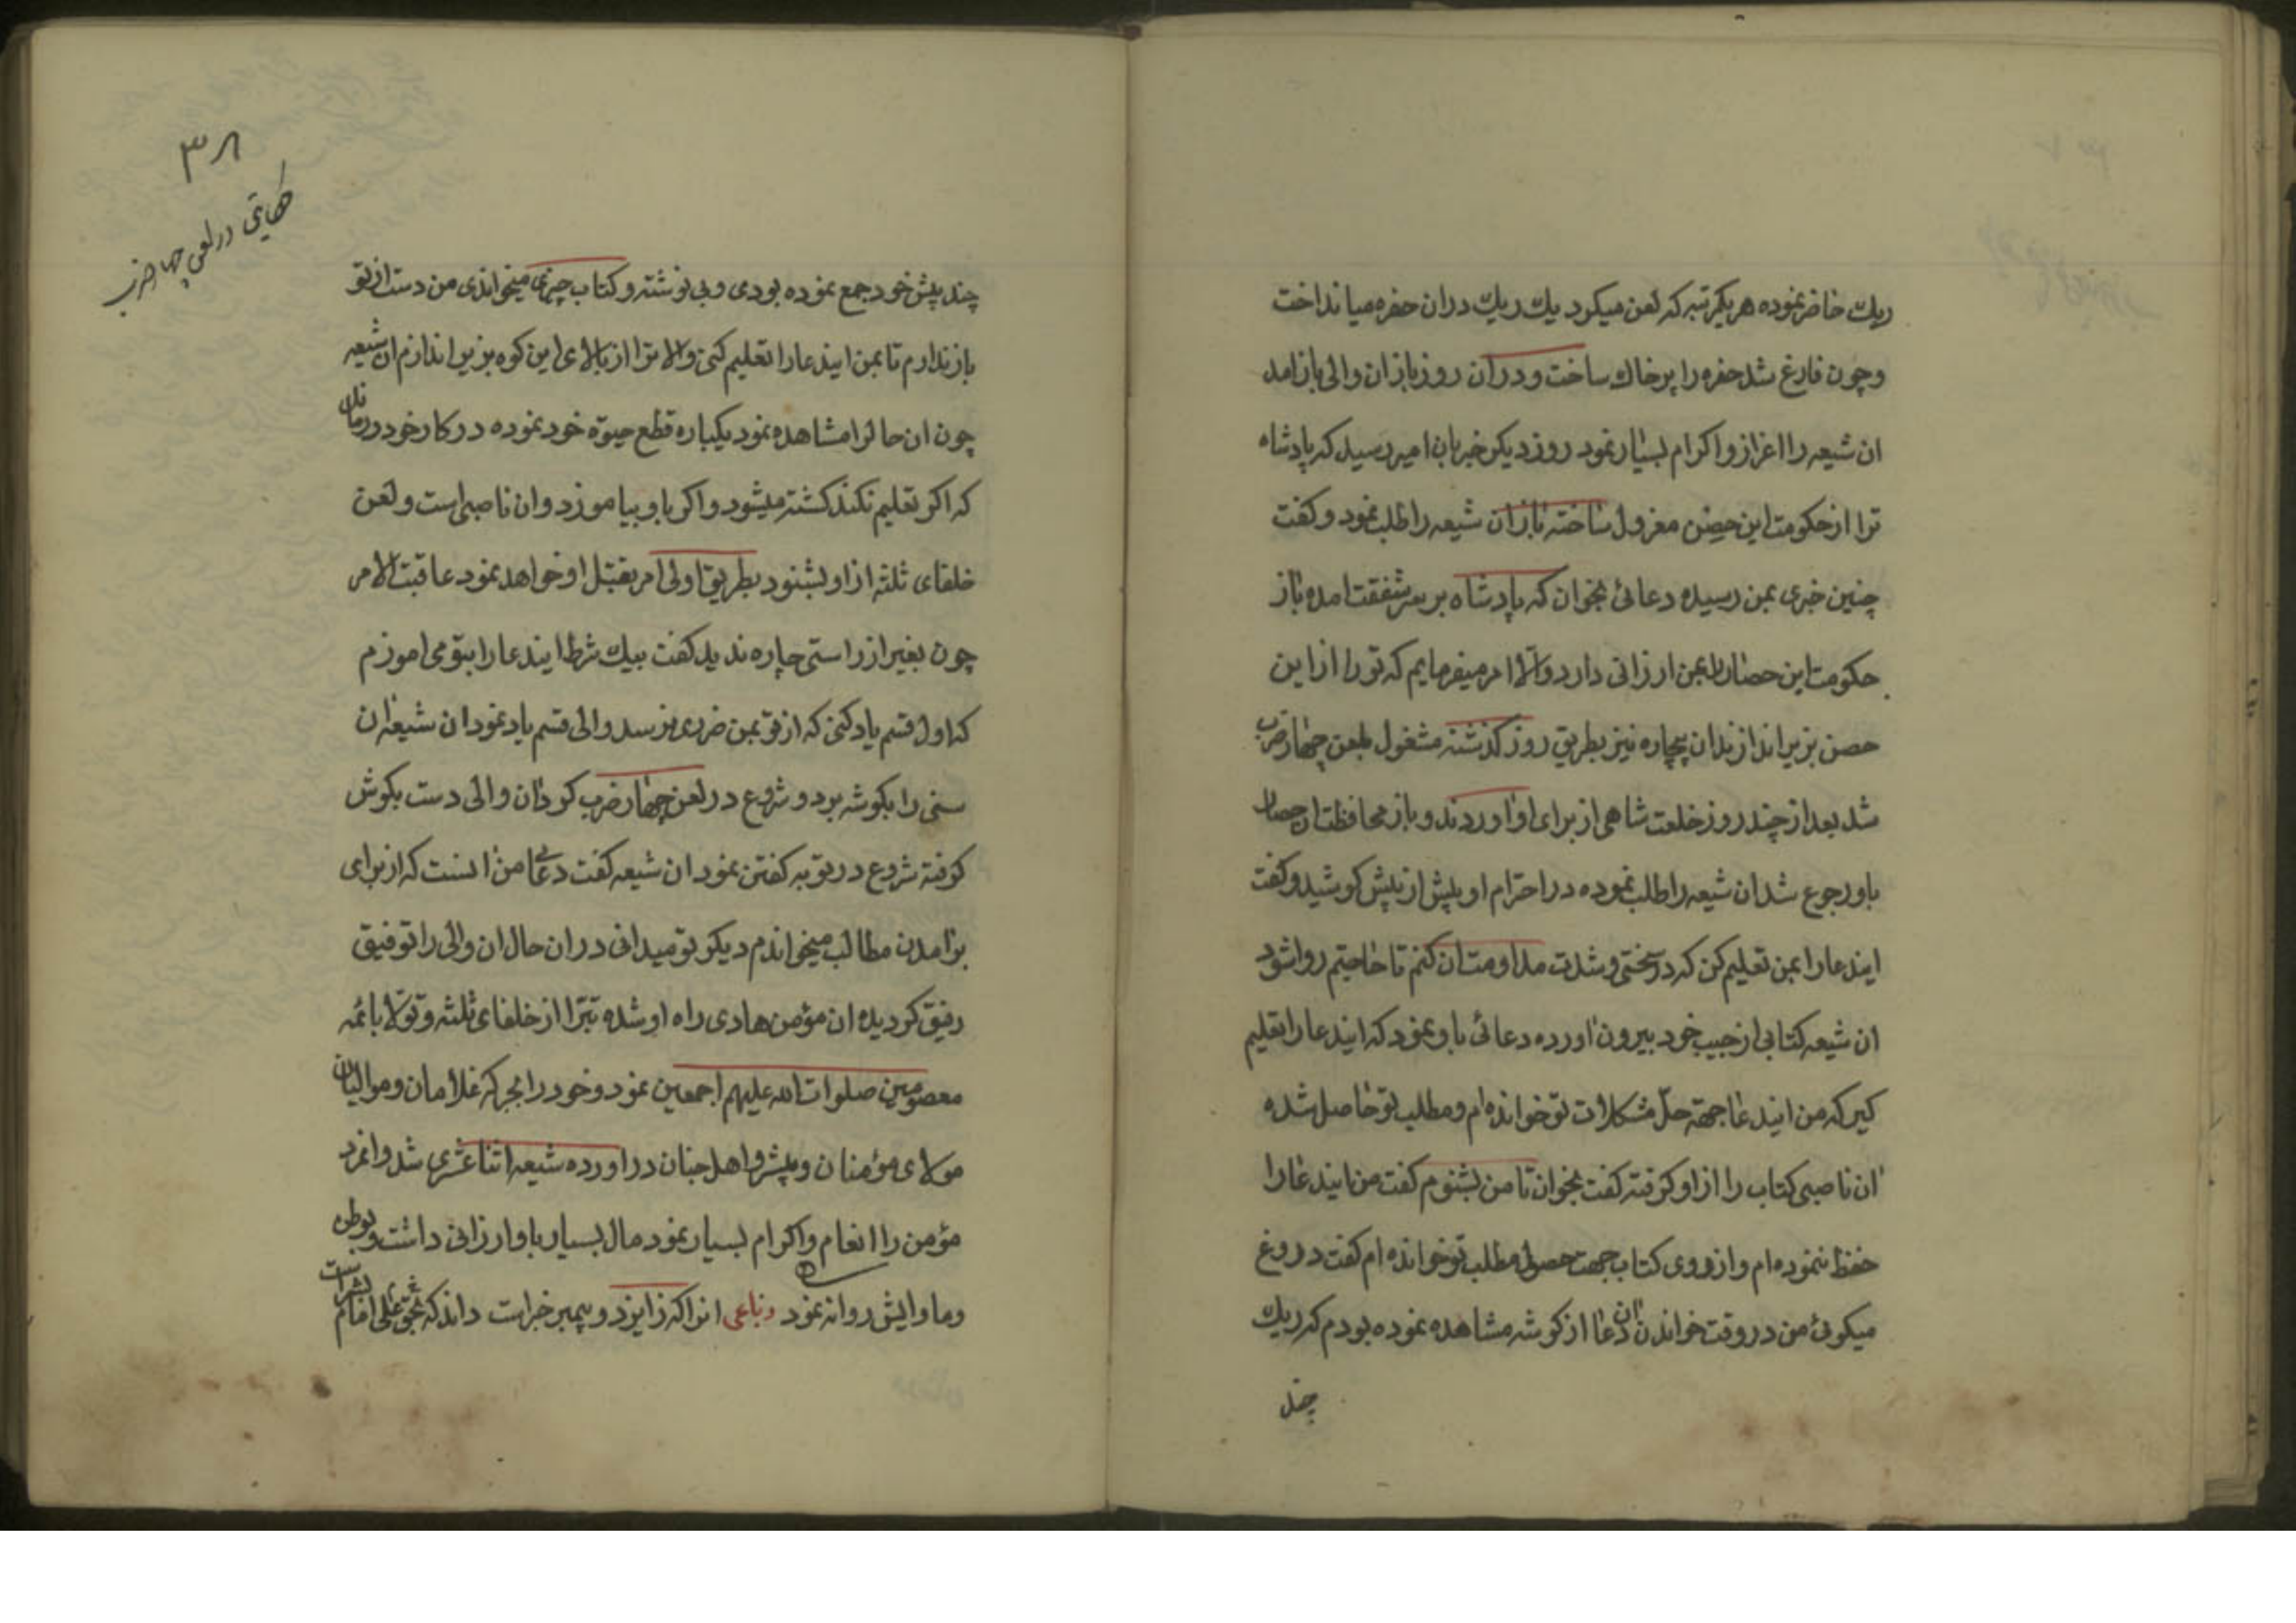 ریك حاضر نموده هر یکمرتبه که لعن میکرد یك ریك دران حفره میانداخت
وچون فارغ شد حفره را پرخاك ساخت ودران روز بازان والی باز امد
ان شیعه را اعزاز واکرام بسیار نمود روز دیکر خبر بان امیر رسید که پادشاه
ترا از حکومت این حصن معزول ساخته بازان شیعه را طلب نمود وکفت
چنین خبری بمن رسیده دعائی بخوان که پادشاه بر سر شفقت امده باز
حکومت این حصار را بمن ارزانی دارد والا امر میفرمایم که تو را از این
حصن بزیر اندازند ان بیچاره نیز بطریق روز کذشته مشغول بلعن چهار ضرب
شد بعد از چند روز خلعت شاهی از برای او اوردند وباز محافظت ان حصار
باو رجوع شد ان شیعه را طلب نموده در احترام او بیش از پیش کوشید وکفت
ایندعا را بمن تعلیم کن که در سختی وشدت مداومت ان کنم تا حاجتم روا شود
ان شیعه کتابی از جیب خود بیرون اورده دعائی باو نمود که ایندعا را تعلیم
کیر که من ایندعا جهة حلّ مشکلات تو خوانده ام ومطلب تو حاصل شده
ان ناصبی کتاب را از او کرفته کفت بخوان تا من بشنوم کفت من ایندعا را
حفظ ننموده ام واز روی کتاب جهت حصول مطلب تو خوانده ام کفت دروغ
میکوئی من در وقت خواندن ان دعا از کوشه مشاهده نموده بودم که ریك
چند
۳۸
حکایتی در لعن چهار ضرب
چند پیش خود جمع نموده بودی وبی نوشته وکتاب چیزی میخواندی من دست از تو
باز ندارم تا بمن ایندعا را تعلیم کنی والا ترا از بالای این کوه بزیر اندازم ان شیعه
چون ان حال را مشاهده نمود یکباره قطع حیوة خود نموده در کار خود درماند
که اکر تعلیم نکند کشته میشود واکر باو بیاموزد وان ناصبی است ولعن
خلفای ثلثه از او بشنود بطریق اولی امر بقتل او خواهد نمود عاقبت الامر
چون بغیر از راستی چاره ندید کفت بیك شرط ایندعا را بتو می اموزم
که اول قسم یاد کنی که از تو بمن ضرری نرسد والی قسم یاد نمود ان شیعه ان
سنی را بکوشه برد وشروع در لعن چهار ضرب کرد ان والی دست بکوش
کرفته شروع در توبه کفتن نمود ان شیعه کفت دعای من اینست که از برای
برامدن مطالب میخواندم دیکر تو میدانی دران حال ان والی را توفیق
رفیق کردیده ان مؤمن هادی راه او شده تبرّا از خلفای ثلثه وتولّا بائمه
معصومین صلوات الله علیهم اجمعین نمود وخود را بجرکه غلامان وموالیان
مولای مؤمنان وپیشرو اهل جنان دراورده شیعه اثنا عشری شد وانمرد
مؤمن را انعام واکرام بسیار نمود مال بسیار باو ارزانی داشت وبوطن
وماوایش روانه نمود رباعی انرا که ز ایزد وپیمبر خبر است داند که بحق علی امام بشر است